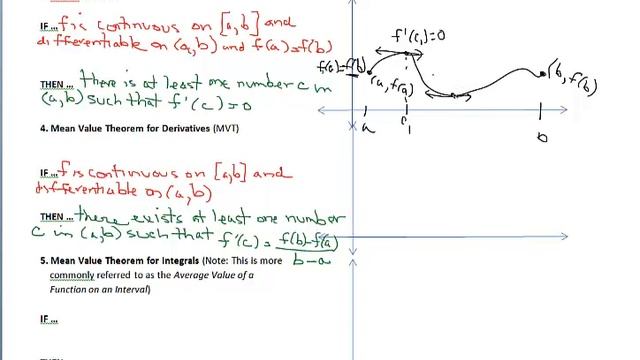 IF... f is continuous on [a,b] and
differentiable on (a,b) and f(a)=f(b)
THEN... there is at least one number c in
(a,b) such that f'(c)=0
4. Mean Value Theorem for Derivatives (MVT)
IF... f is continuous on [a,b] and
differentiable on (a,b)
THEN... there exists at least one number
c in (a,b) such that f'(c) = f(b)-f(a)
b-a
5. Mean Value Theorem for Integrals (Note: This is more
commonly referred to as the Average Value of a
Function on an Interval)
IF...
f'(c₁)=0
f(a)=f(b)
(a, f(a))
(b, f(b))
a
c₁
b